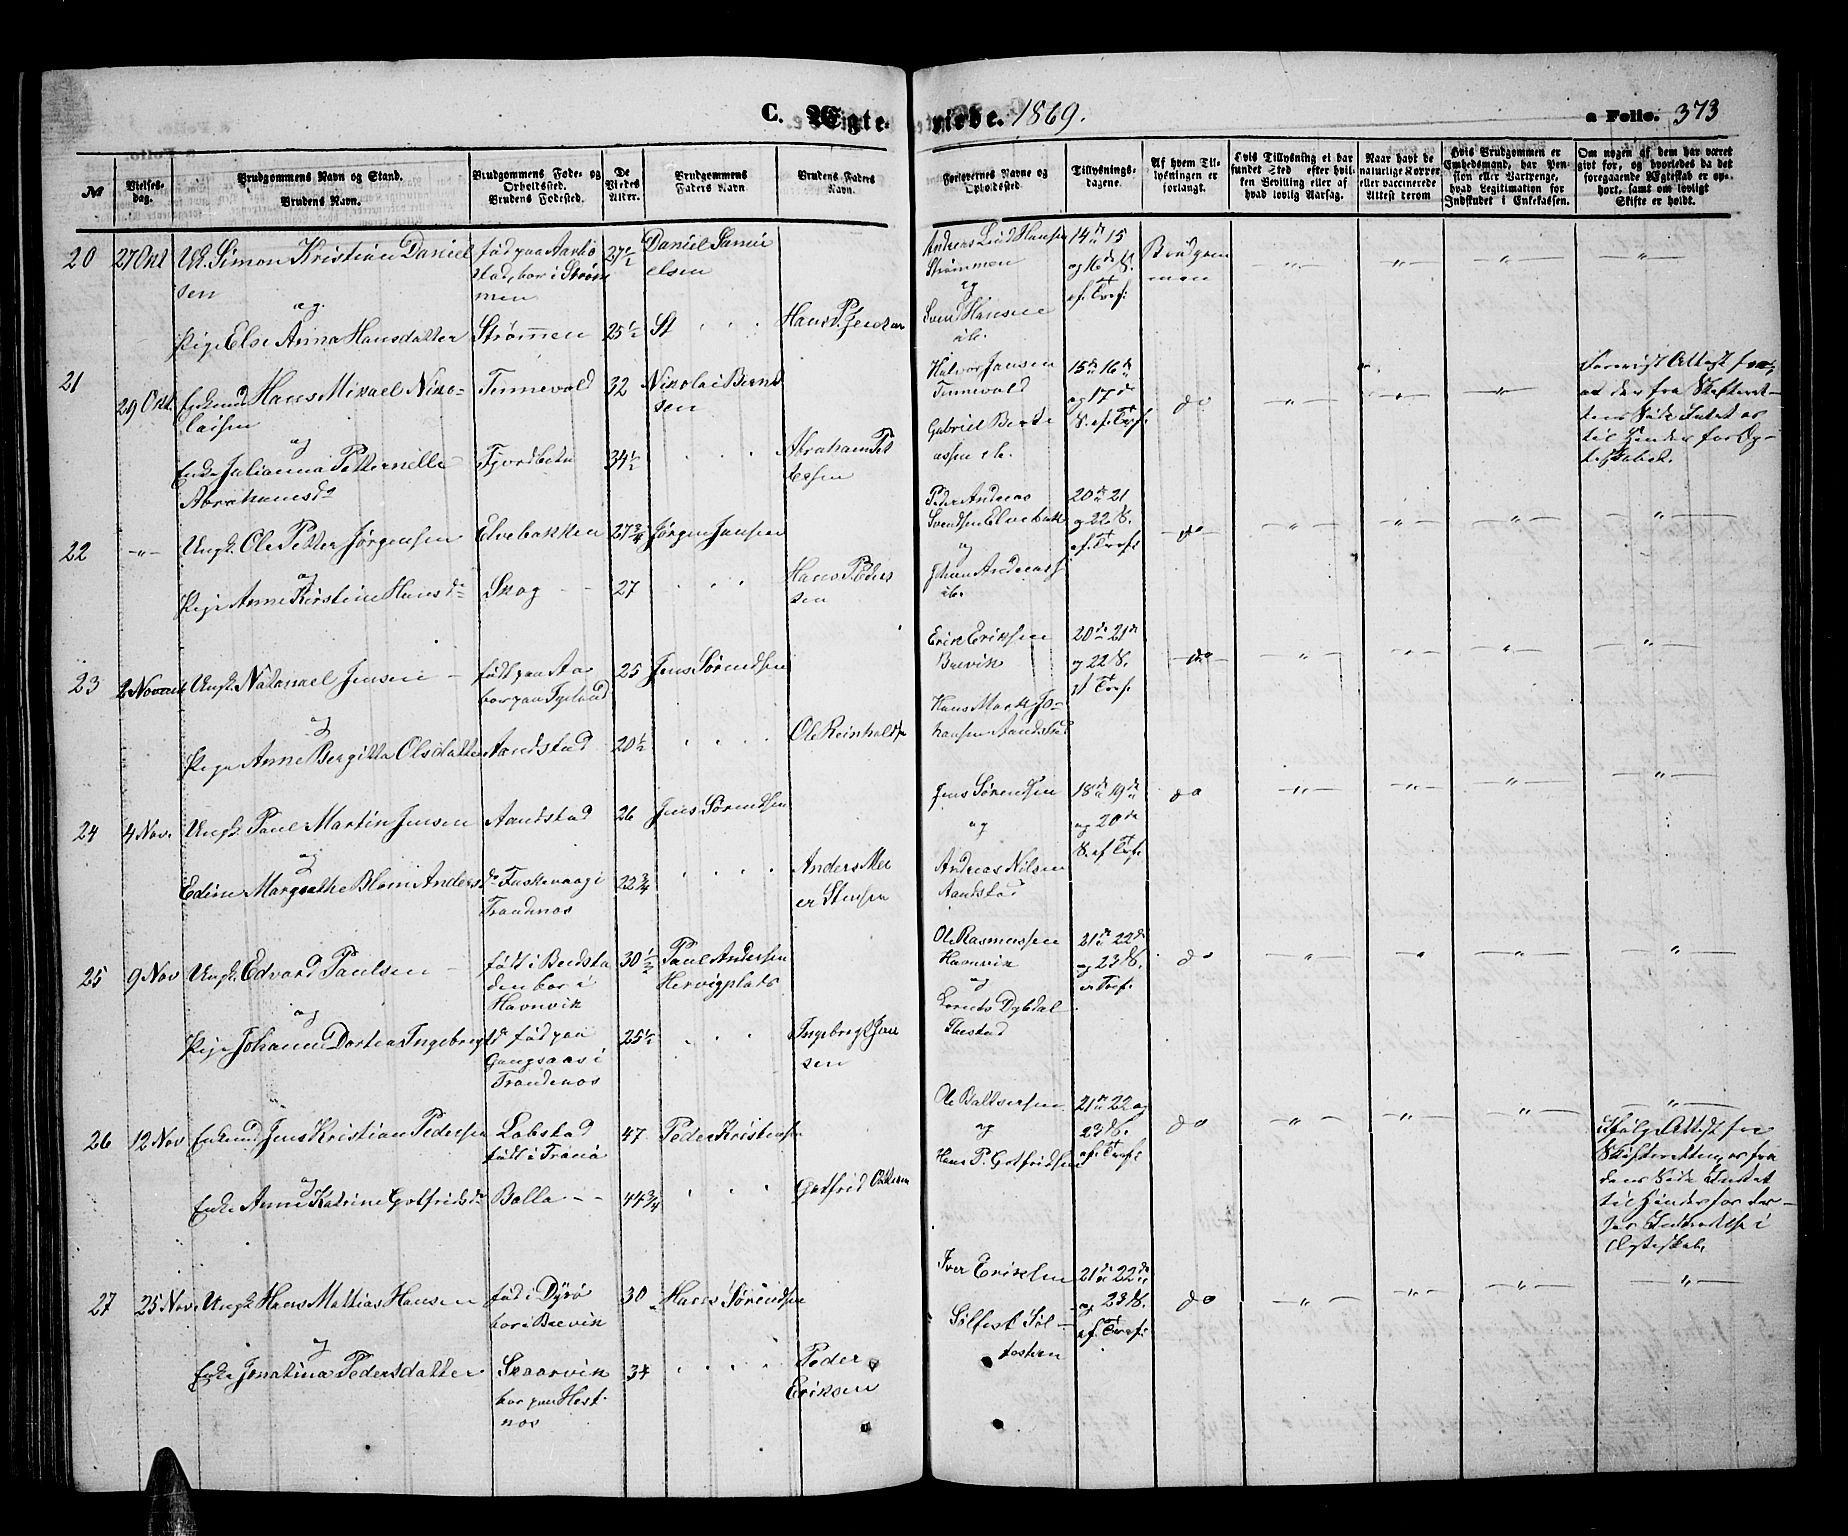 C. Ægte-viede. 1869.
a Folio. 373
№
Vielses-dag.
Brudgommens Navn og Stand.
Brudens Navn.
Brudgommens Føde- og Opholdssted.
Brudens Fødested.
De Viedes Alder.
Brudgommens Faders Navn
Brudens Faders Navn.
Forlovernes Navne og Opholdssted.
Tillysnings-dagene.
Af hvem Tillysningen er forlangt.
Hvis Tillysning ei har fundet Sted efter hvilken Bevilling eller af hvad lovlig Aarsag.
Naar havt de naturlige Kopper eller vaccinerede Attest derom
Hvis Brudgommen er Embedsmand, har Pension eller Vartpenge, hvad Legitimation for Indskudet i Enkekassen.
Om nogen af dem har været givt før, og hvorledes da det foregaaende Ægteskab er ophørt, samt om lovligt Skifte er holdt.
20 27 Okt Uk. Simon Kristian Daniel
sen
og
Pige Else Anna Hansdatter
født paa
stad, bor i Strøm
men
Strømen
27½
25½
Daniel Samu
elsen
Hans P. Jensen
Andreas Lind Hansen
Strømmen
og
Svend Hansen
ib.
14de 15
og 16de S.
ef. Tref:
Brudgom
men
21 29 Okt. Enkmd Hans Mikael Niko-
laisen
og
Enke Julianna Petternille
Abrahamsdr
Tennevold
Fjordbotn
32
34½
Nikolai Bernd
sen
Abraham Pet
tersen
Halvor Jensen
Tennevold
Gabriel
ib.
15de 16de
og 17de
S. ef. Tref.
do
Forevist Attest for
at der fra Skifteret
tens Side Intet er
til Hinder for Æg-
teskabet.
22 -"- Ungk. Ole Petter Jørgensen
og
Pige Anne Kirstine Hansdr
Elvebakken
Skog
27¾
27
Jørgen Jensen
Hans Peder
sen
Peder Andreas
Svendsen Elvebak
og
Johan Andreas
ib.
20de 21
og 22 S.
ef. Tref:
do
23 2 Novemb Ungk. Natanael Jensen
og
Pige Anne Bergitta Olsdatter
født paa Aa
bor paa
Aandstad
25
20½
Jens Sørendsen
Ole Reinholds
Erik Eriksen
Brevik
Hans Mark Jo-
hansen Aandstad
20de 21de
og 22 S.
ef Tref.
do
24 4 Nov. Ungk. Paul Martin Jensen
og
Edine Margrethe Blom Andersdr
Aandstad
Faskevaag i
Trondenæs
26
22¾
Jens Sørendsen
Anders Mei
er Stensen
Jens Sørendsen
og
Andreas Nilsen
Aandstad
18de 19de
og 20de
S. ef Tref.
do
25 9 Nov Ungk. Edvard Paulsen
og
Pige Johanna Dortea Ingebrigtdr
født i Beidsta
den bor i
Havnvik
fød paa
Gangsaas i
Trondenæs
30½
25½
Paul Andersen
Hervigplads
Ingebrigt Jen
sen
Ole Rasmussen
Havnvik
og
Lorents Dybdal
Ibestad
21de 22de
og 23 S.
ef Tref.
do
26 12 Nov Enkmd Jens Kristian Pedersen
og
Enke Anne Katrine Gotfridsdr
Løbstad
født i Tranø
Bolla
47
44¾
Peder Kristensen
Gotfrid Ottesen
Ole Baltsersen
og
Hans P. Gotfridsen
21de 22 og
23 S.
ef. Tref.
do
Ifølge Attest fra
Skifteretten er fra
dens Side Intet
til Hinder for der-
es Indtrædelse i
Ægteskab.
27 25 Nov. Ungk. Hans Mattias Hansen
og
Enke Jonatina Pedersdatter
fød i Dyrø
bor i Brevik
Skaarvik
bor paa Hest-
næs
30
34
Hans Sørendsen
Peder
Eriksen
Iver Eriksen
Sølfest Søl-
festsen
21de 22de
og 23 S.
ef. Tref:
do